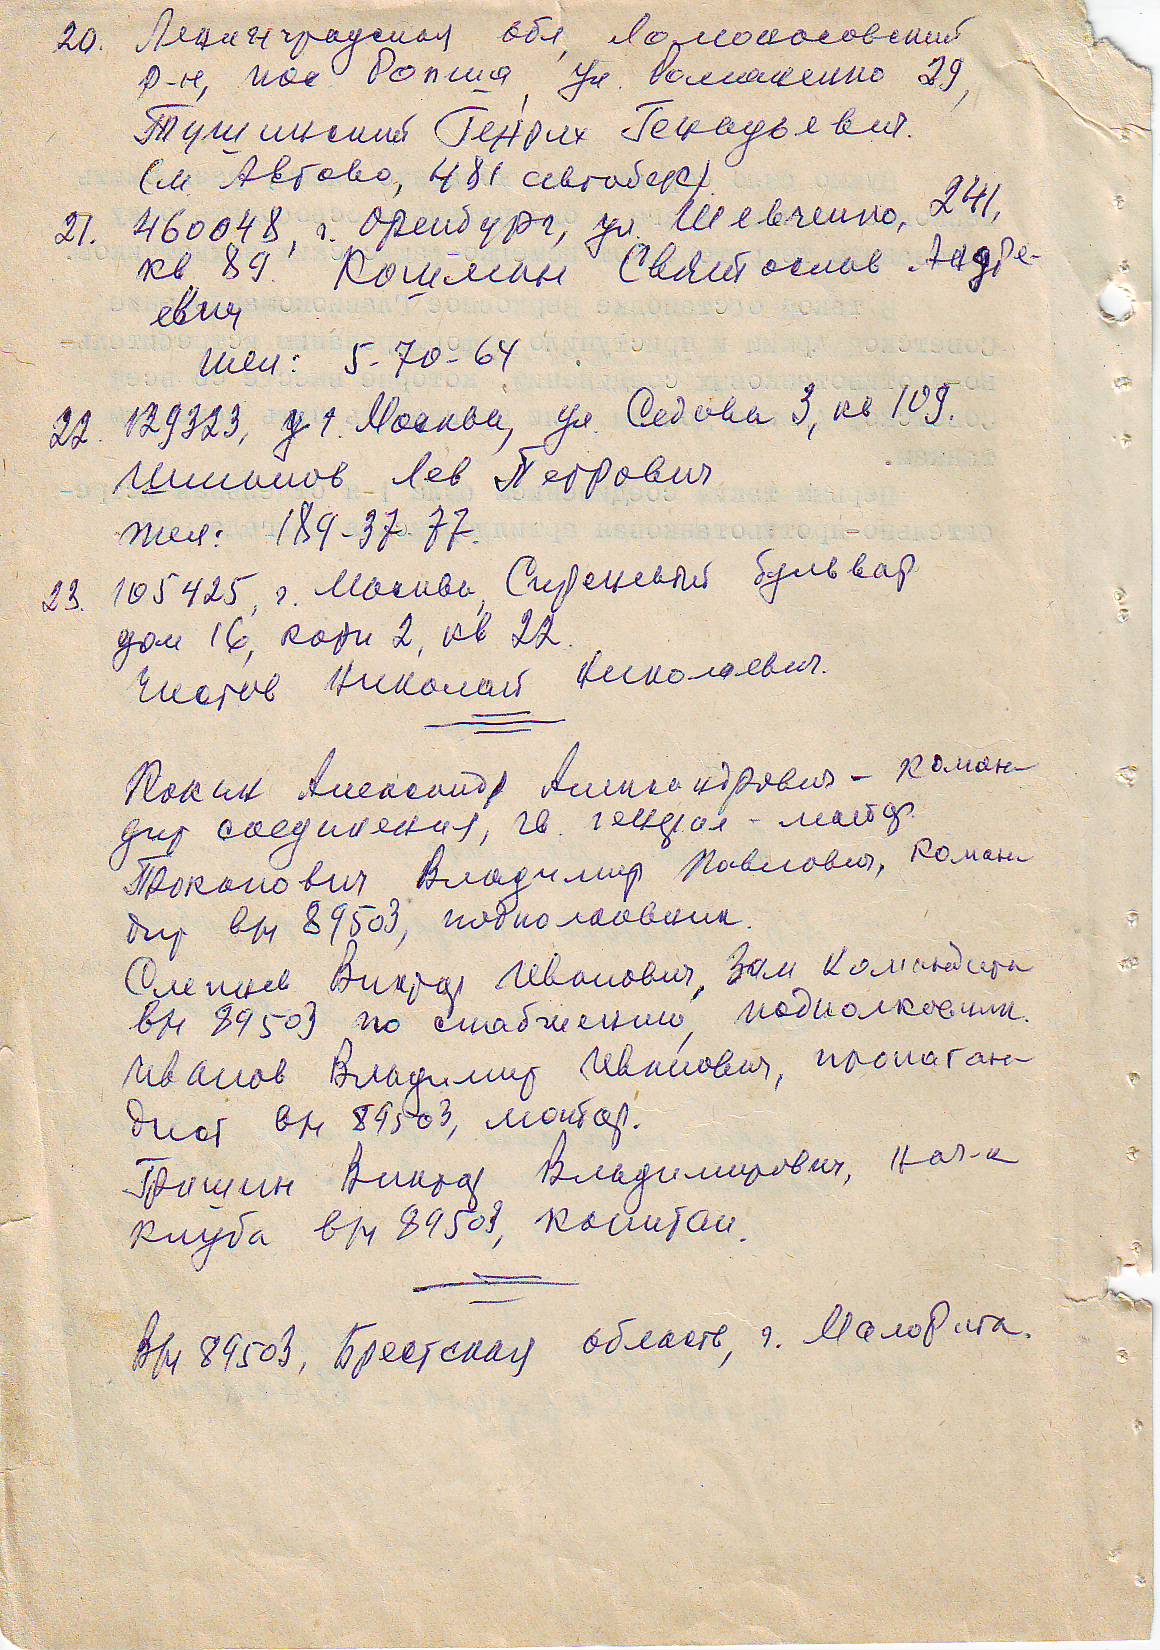 20. Ленинградская обл, Ломоносовский
р-н, пос Ропша, ул. Романенко 29,
Тушинский Генрих Генадьевич.
(м. Автово, 481 автобус).
21. 460048, г. Оренбург, ул. Шевченко, 241,
кв 89. Кошман Святослав Андре-
евич
тел: 5-70-64
22. 129323, г. Москва, ул. Седова 3, кв 109.
Шишов Лев Петрович
тел: 189-37-77.
23. 105425, г. Москва, Сиреневый бульвар
дом 16, корп 2, кв 22.
Чистов Николай Николаевич.
Александр Александрович - коман-
дир соединения, гв. генерал-майор.
Проканович Владимир Павлович, коман-
дир в/ч 89503, подполковник.
Слепнев Виктор Иванович, зам командира
в/ч 89503 по снабжению, подполковник.
Иванов Владимир Иванович, пропаган-
дист в/ч 89503, майор.
Гришин Виктор Владимирович, нач-к
клуба в/ч 89503, капитан.
В/ч 89503, Брестская область, г. Малорита.